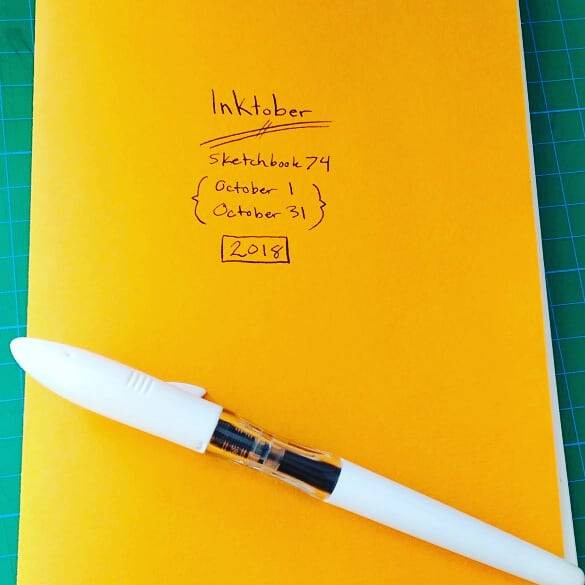 Inktober
Sketchbook 74
October 1
October 31
2018